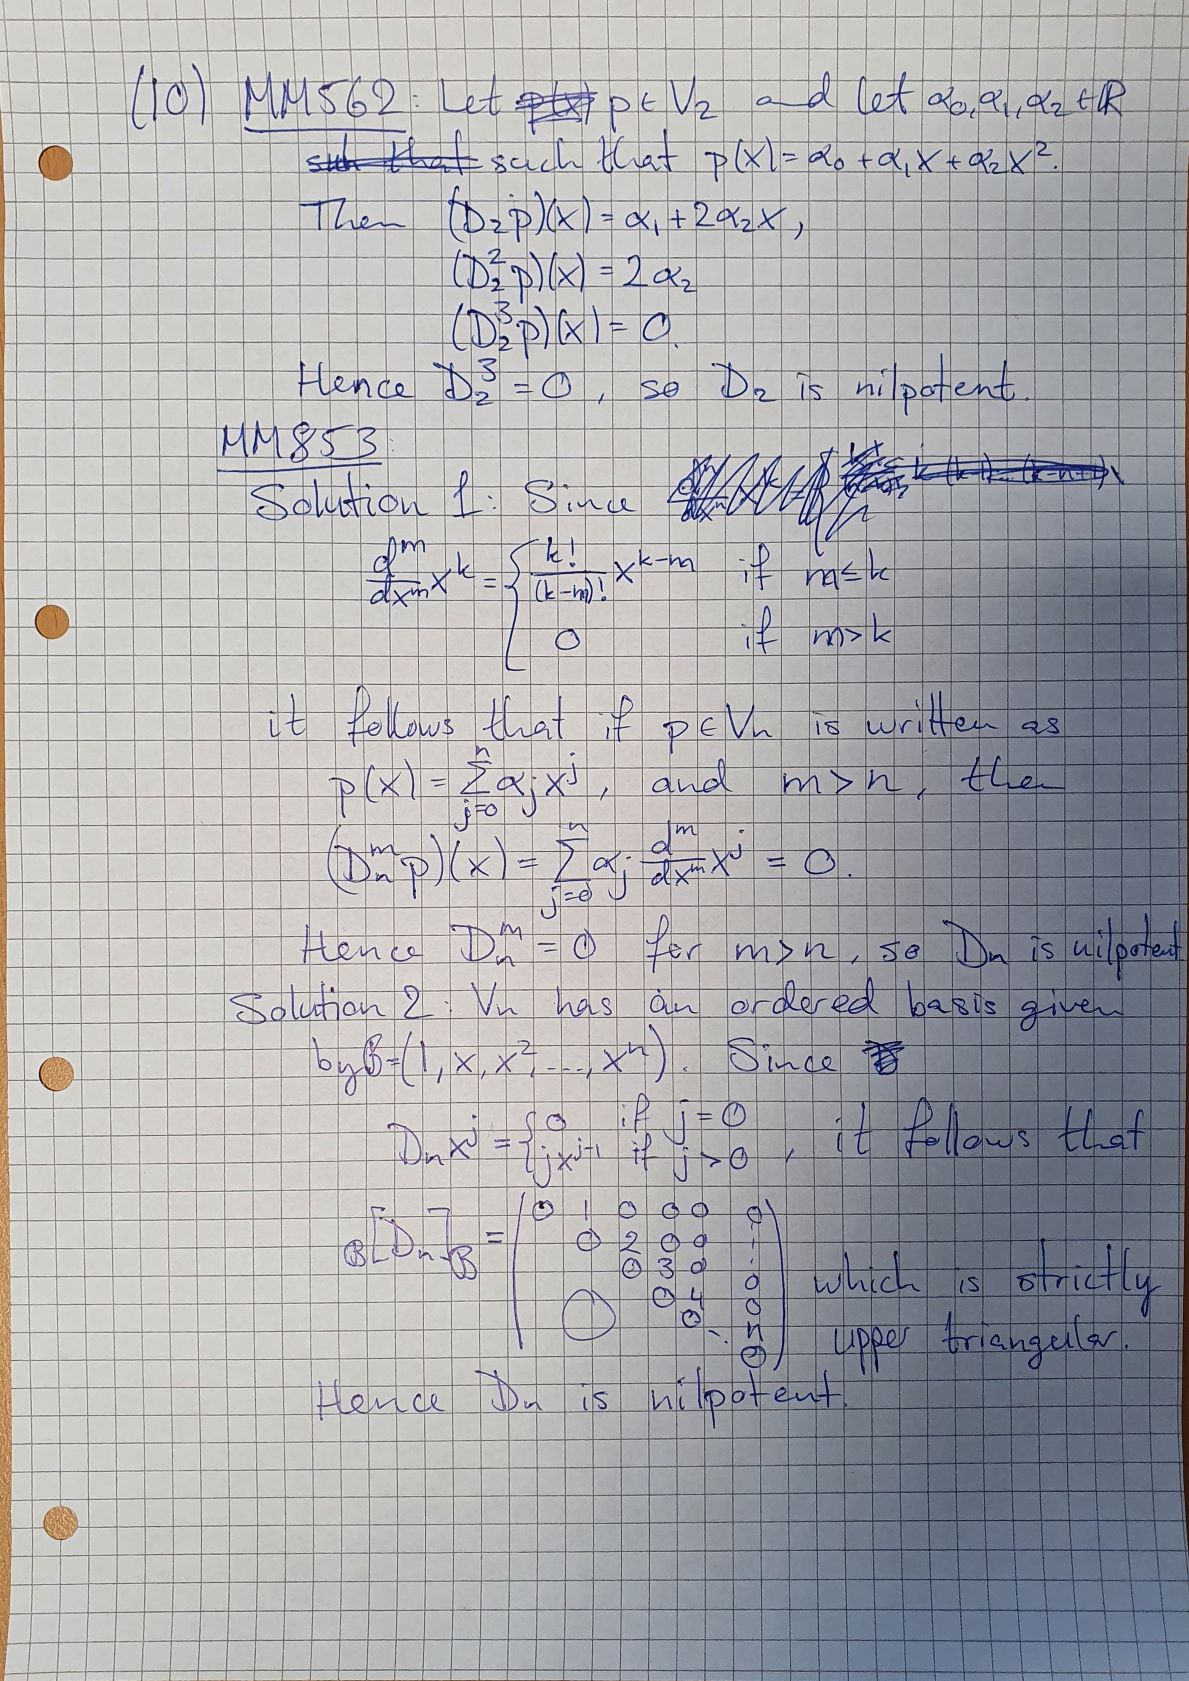 (10) MM562: Let p(x) p∈V₂ and let α₀,α₁,α₂∈ℝ
such that such that p(x)=α₀+α₁x+α₂x².
Then (D₂p)(x)=α₁+2α₂x,
(D₂²p)(x)=2α₂
(D₂³p)(x)=0.
Hence D₂³=0, so D₂ is nilpotent.
MM853:
Solution 1: Since
d^m/dx^m x^k = { k!/(k-m)! x^{k-m} if m≤k
0 if m>k
it follows that if p∈Vₙ is written as
p(x)=∑_{j=0}^{n} α_j x^j, and m>n, then
(Dₙ^m p)(x)=∑_{j=0}^{n} α_j d^m/dx^m x^j = 0.
Hence Dₙ^m=0 for m>n, so Dₙ is nilpotent
Solution 2: Vₙ has an ordered basis given
by B=(1, x, x², ..., xⁿ). Since
Dₙx^j = { 0 if j=0
jx^{j-1} if j>0 , it follows that
B[Dₙ]B = ( 0 1 0 0 0 0
0 2 0 0 ⋮
0 3 0 0
0 4 0
0 ⋱ n
0 0 ) which is strictly
upper triangular.
Hence Dₙ is nilpotent.